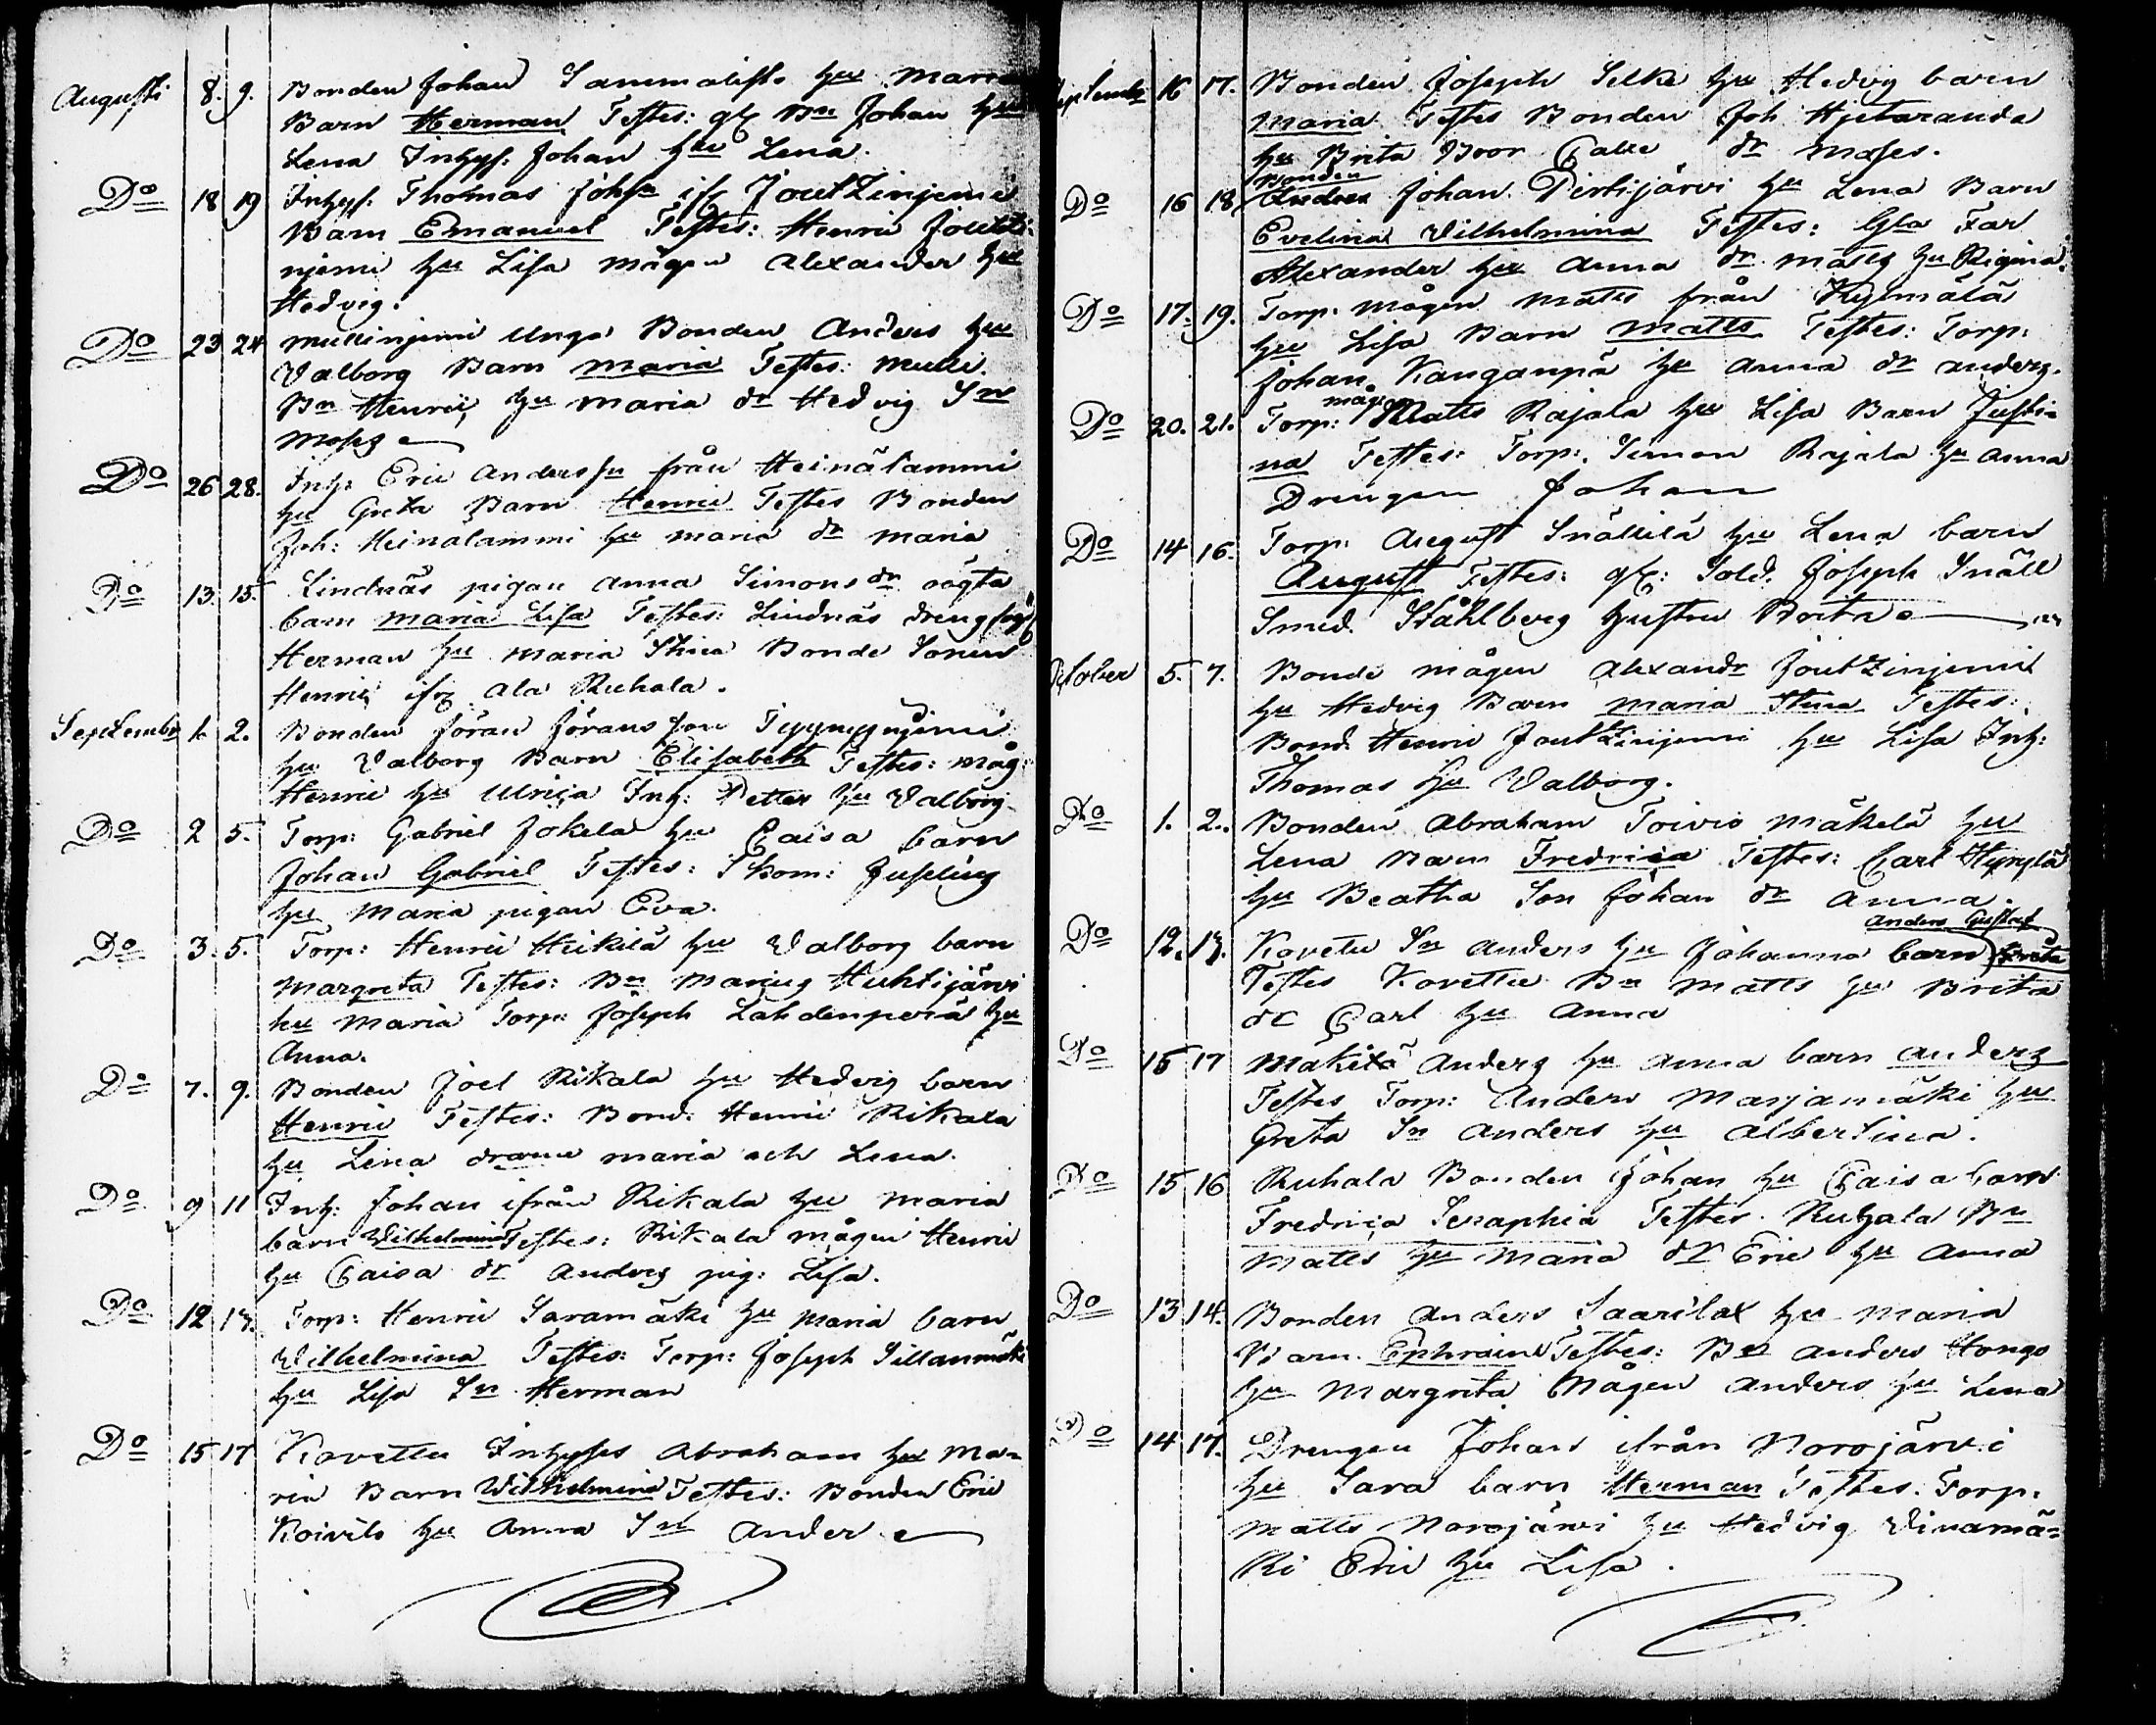 Augusti 8. 9. Bonden Johan Sammalisto hu Maria
Barn Herman Testes: gl Bn Johan hu
Lena Inhys. Johan hu Lena.
Do 18 19 Inhys. Thomas Johsn ifr Joutzinjemi
Barn Emanuel Testes: Henric Joutzi
njemi hu Lisa mågen Alexander hu
Hedvig.
Do 23 24 Mullinjemi unga Bonden Anders hu
Valborg Barn Maria Testes: Mulli.
Bn Henric, hu Maria dr Hedvig Sn
Moses
Do 26 28. Inh: Eric Anderssn från Heinälammi
hu Greta Barn Henric Testes Bonden
Joh: Heinälammi hu Maria dr Maria
Do 13. 15. Lindnäs pigan Anna Simonsdr oägta
barn Maria Lisa Testes: Lindnäs dreng
Herman hu Maria Stina Bonde Sonen
Henric ifr Ala Ruhala.
Septembr 1. 2. Bonden Jöran Jöransson Tyynynjemi
hu Valborg Barn Elisabeth Testes: Måg:
Henric hu Ulrica Inh: Petter hu Valborg
Do 2 5. Torp: Gabriel Jokela hu Caisa barn
Johan Gabriel Testes: Skom: Juselius
hu Maria pigan Eva.
Do 3. 5. Torp: Henric Heikilä hu Valborg barn
Margreta Testes: Bn Marcus Huhtijärvi
hu Maria Torp: Joseph Lahdenperä hu
Anna.
Do 7. 9. Bonden Joel Rikala hu Hedvig barn
Henric Testes: Bond: Henric Rikala
hu Lena Maria och Lena.
Do 9 11 Inh: Johan ifrån Rikala hu Maria
barn Wilhelmina Testes: Rikala mågen Henric
hu Caisa dr Anders pig: Lisa.
Do 12 13. Torp: Henric Saramäki hu Maria barn
Wilhelmina Testes: Torp: Joseph Sillanmäki
hu Lisa Sn Herman
Do 15 17 Kovettu Inhyses Abraham hu Ma-
ria Barn Wilhelmina Testes: Bonden Eric
Koivisto hu Anna Sn Anders
September 16 17. Bonden Joseph Selki hu Hedvig barn
Maria Testes Bonden Joh Hjetaranda
hu Brita Bror Calle dr Moses.
Bonden
Do 16 18 Johan Pirtijärvi hu Lena Barn
Evelina Vilhelmina Testes: Gla Far
Alexander hu Anna dr Matts hu Regina.
Do 17. 19. Torp. mågen Matts från Kylmälä
hu Lisa Barn Matts Testes: Torp:
Johan Kanganpä hu Anna dr Anders.
mågen
Do 20. 21. Torp: Matts Rajala hu Lisa Barn Justi-
na Testes: Torp: Simon Rajala hu Anna
Drengen Johan
Do 14 16. Torp: August Snällilä hu Lena barn
August Testes: gl: Sold. Joseph Snäll
Smed. Ståhlberg hustru Brita
October 5. 7. Bonde mågen Alexandr Joutzinjemi
hu Hedvig Barn Maria Stina Testes:
Bond. Henric Joutzinjemi hu Lisa Inh:
Thomas hu Valborg.
Do 1. 2. Bonden Abraham Toivio Mäkelä hu
Lena Barn Fredrica Testes: Carl Hyrylä
hu Beatha Son Johan dr Anna.
Anders Gustaf
Do 12. 13. Kovetu Sn Anders hu Johanna barn Brita
Testes Kovettu Bn Matts hu Brita
dr Carl hu Anna
Do 15 17 Mäkilä Anders hu Anna barn Anders
Testes Torp: Anders Marjamäki hu
Greta Sn Anders hu Albertina.
Do 15 16 Ruhala Bonden Johan hu Caisa barn
Fredrica Seraphia Testes. Ruhala Bn
Matts hu Maria dr Eric hu Anna
Do 13 14. Bonden Anders Saarilax hu Maria
Barn. Ephraim Testes: Bn Anders Hongo
hu Margreta Mågen Anders hu Lena
Do 14 17. Drengen Johan ifrån Norojärvi
hu Sara barn Herman Testes. Torp.
Matts Norojärvi hu Hedvig Vinamä-
ki Eric hu Lisa.